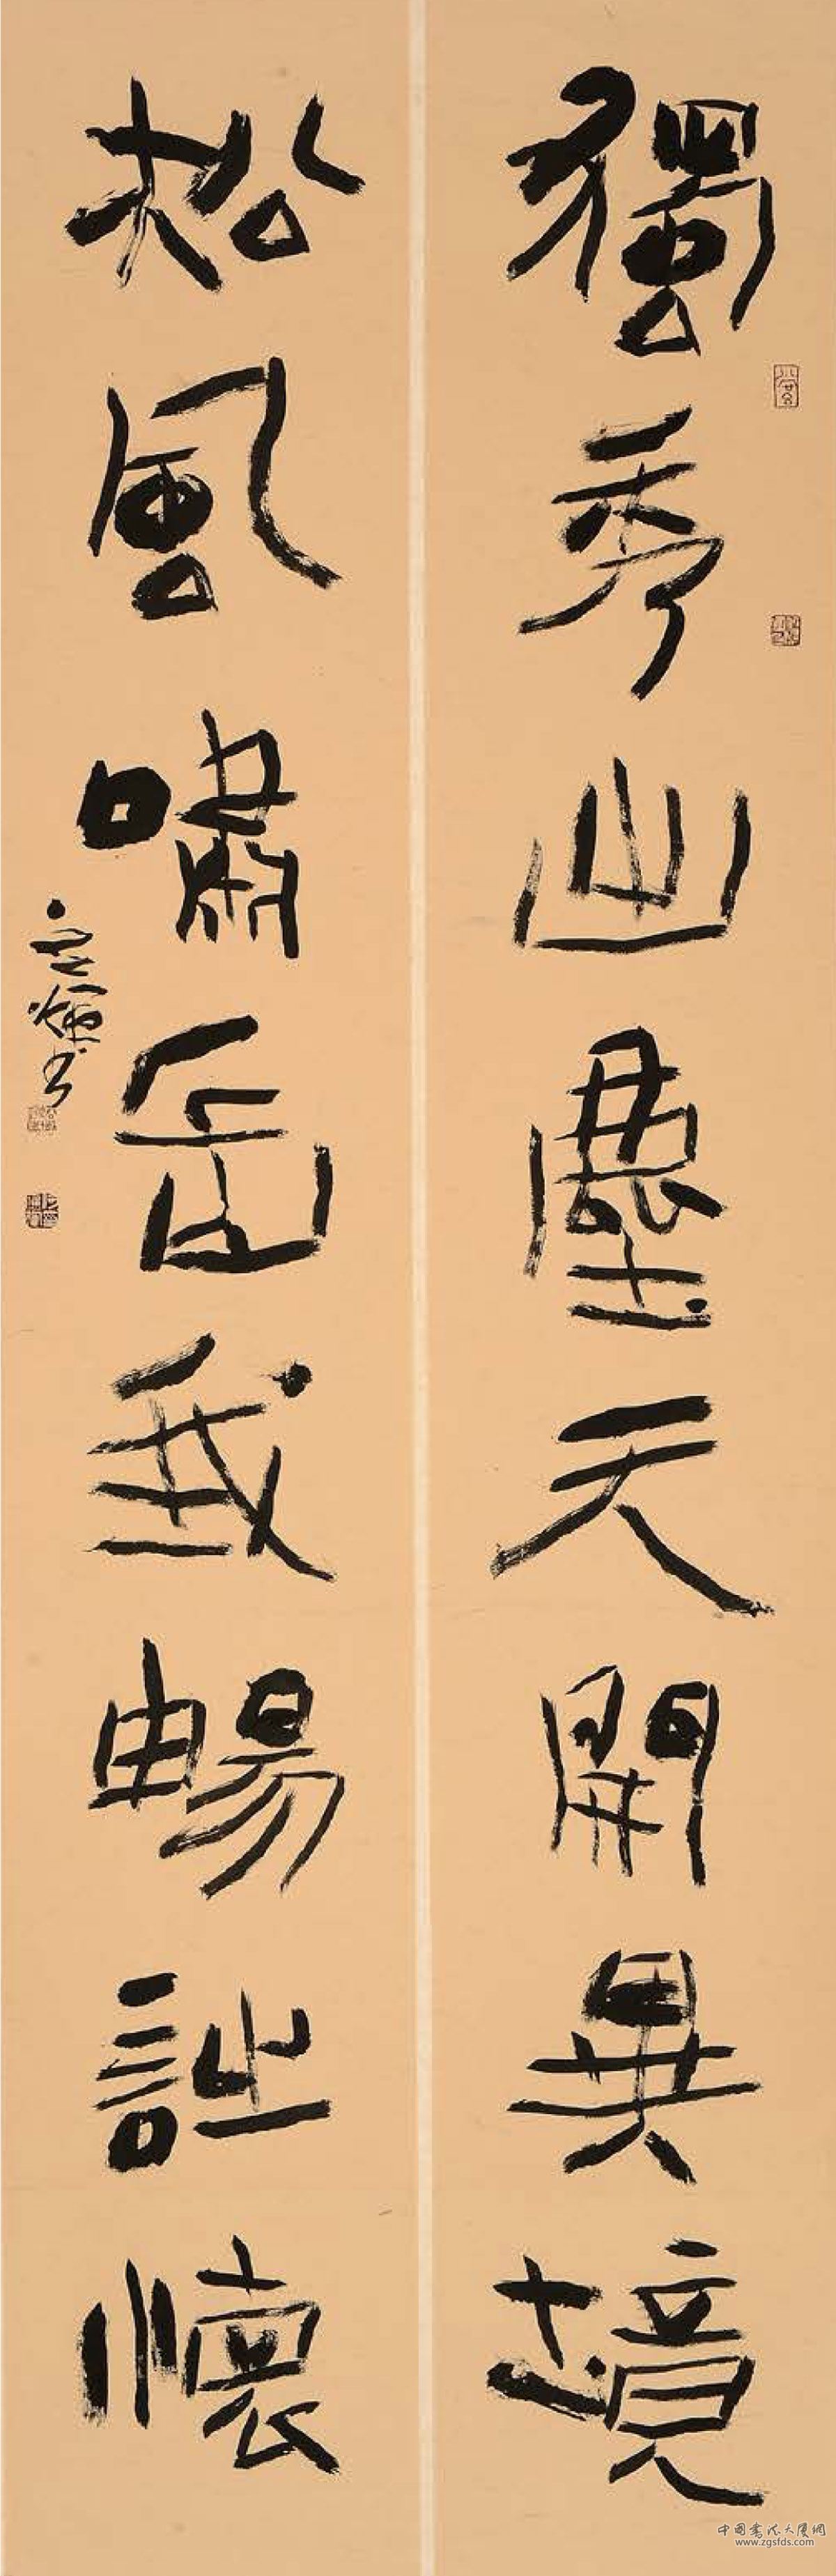 獨秀出塵天開異境
松風嘯岳我暢詩懷
書
中國書法大廈網
www.zgsfds.com